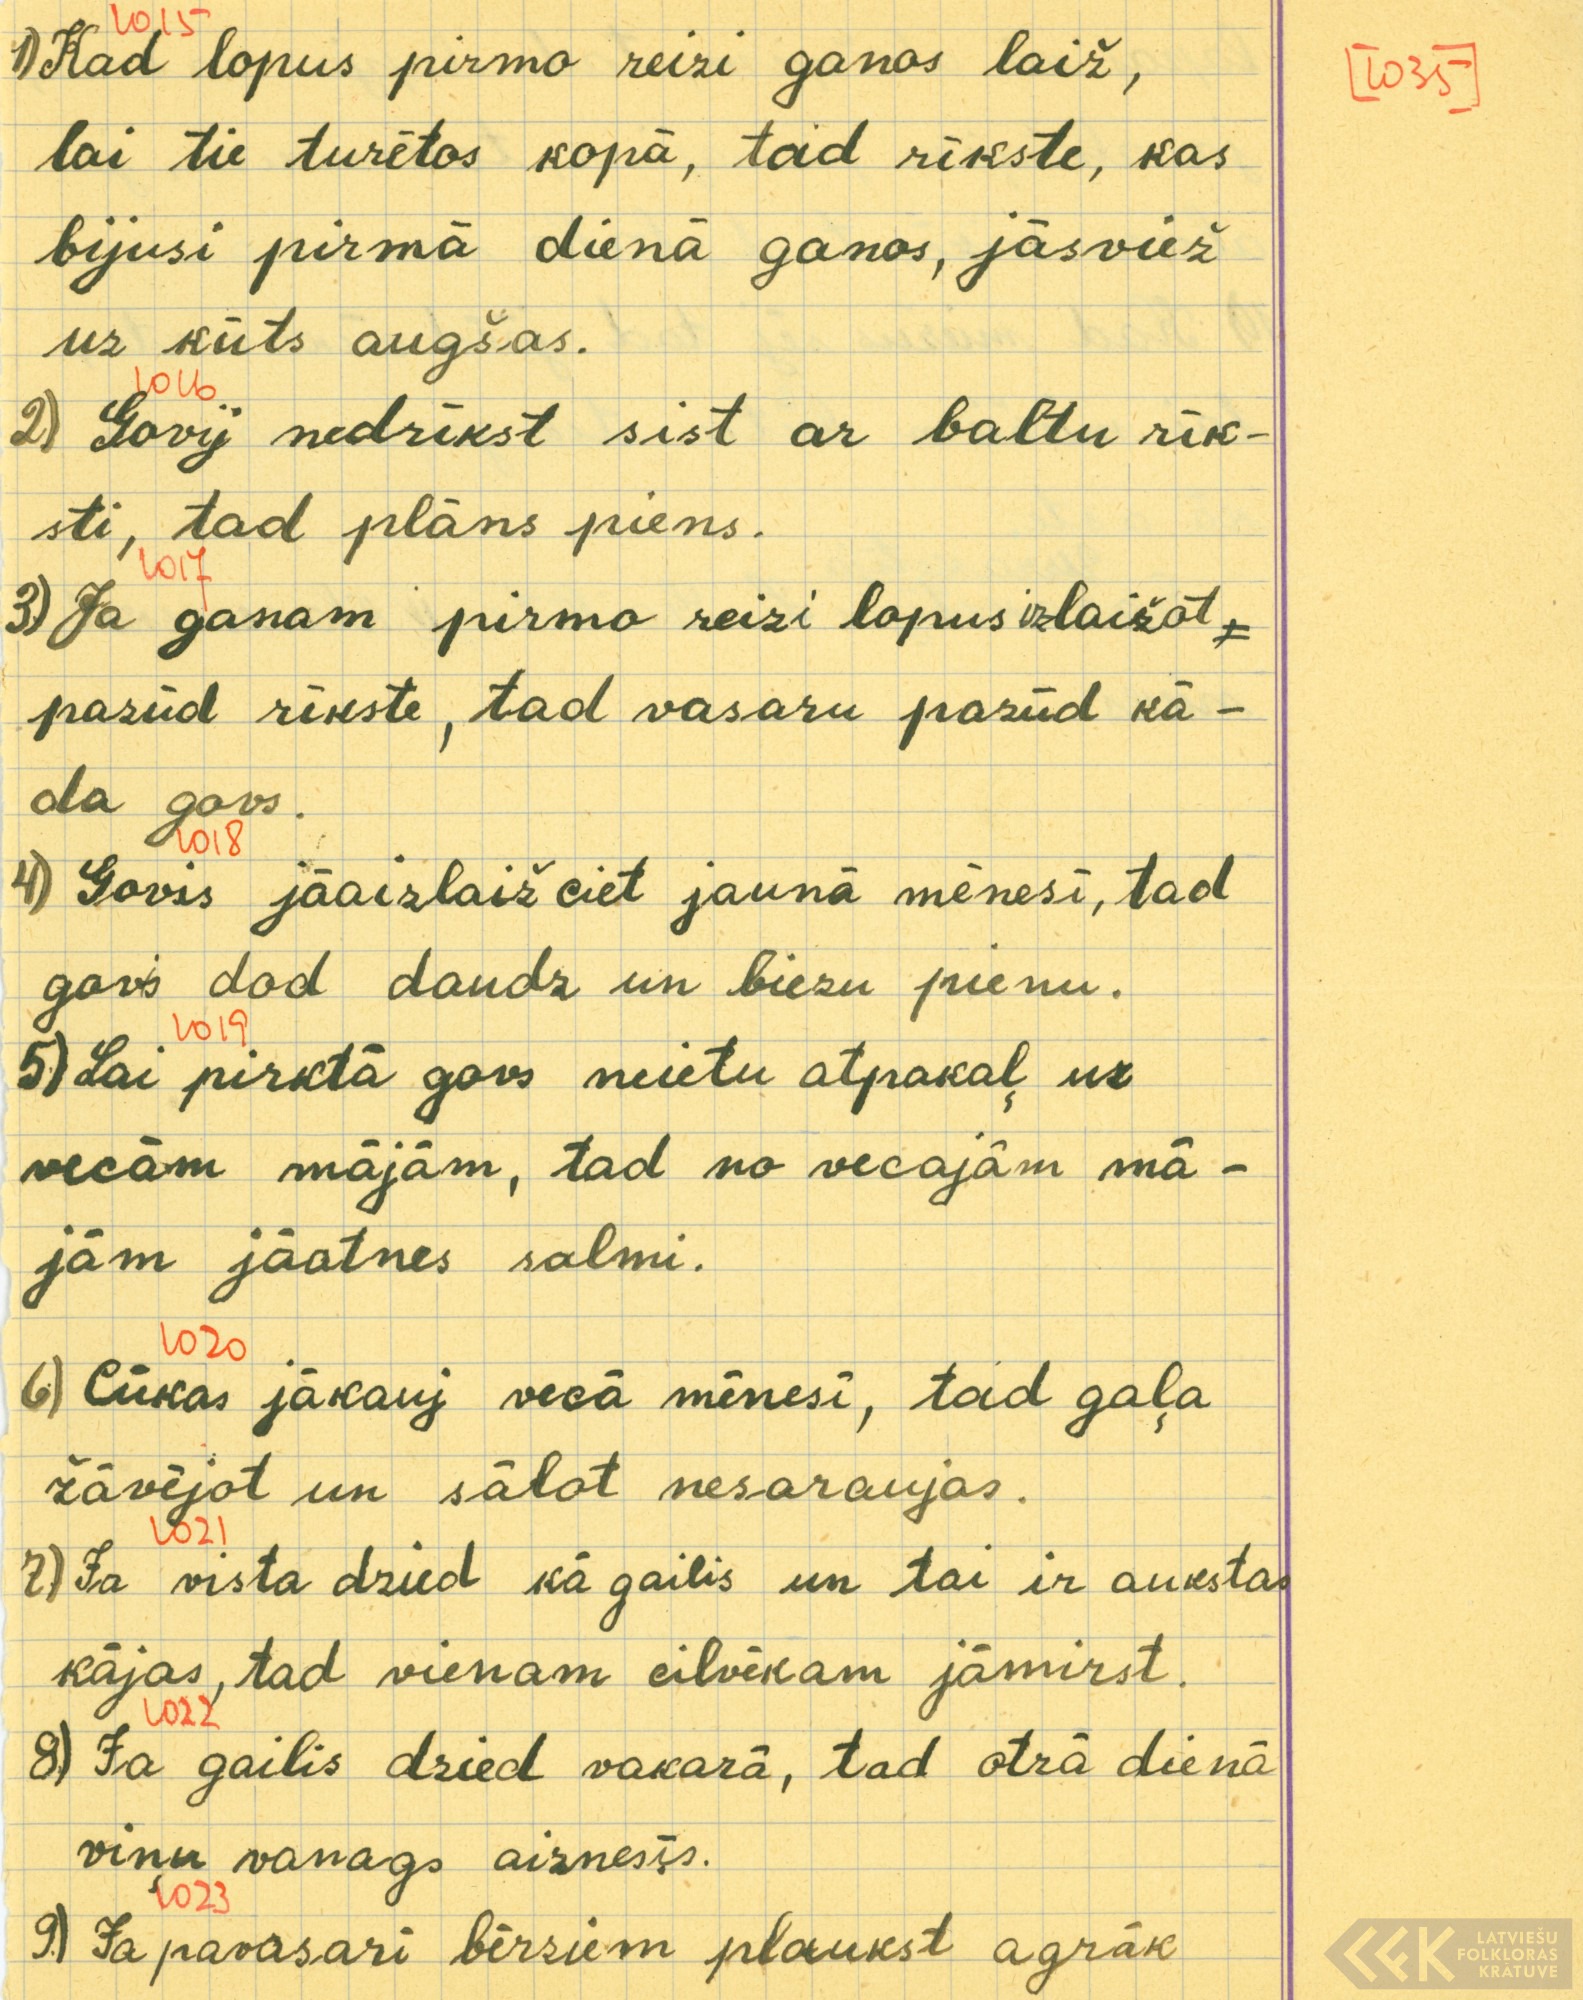 1015
[1035]
1) Kad lopus pirmo reizi ganos laiž,
lai tie turētos kopā, tad rīkste, kas
bijusi pirmā dienā ganos, jāsviež
uz kūts augšas.
1016
2) Govij nedrīkst sist ar baltu rīk-
sti, tad plāns piens.
1017
3) Ja ganam pirmo reizi lopus izlaižot,
pazūd rīkste, tad vasaru pazūd kā-
da govs.
1018
4) Govis jāaizlaiž ciet jaunā mēnesī, tad
govs dod daudz un biezu pienu.
1019
5) Lai pirktā govs neietu atpakaļ uz
vecām mājām, tad no vecajām mā-
jām jāatnes salmi.
1020
6) Cūkas jākauj vecā mēnesī, tad gaļa
žāvējot un sālot nesaraujas.
1021
7) Ja vista dzied kā gailis un tai ir aukstas
kājas, tad vienam cilvēkam jāmirst.
1022
8) Ja gailis dzied vakarā, tad otrā dienā
viņu vanags aiznesīs.
1023
9) Ja pavasarī bērziem plaukst agrāk
LATVIEŠU
FOLKLORAS
KRĀTUVE